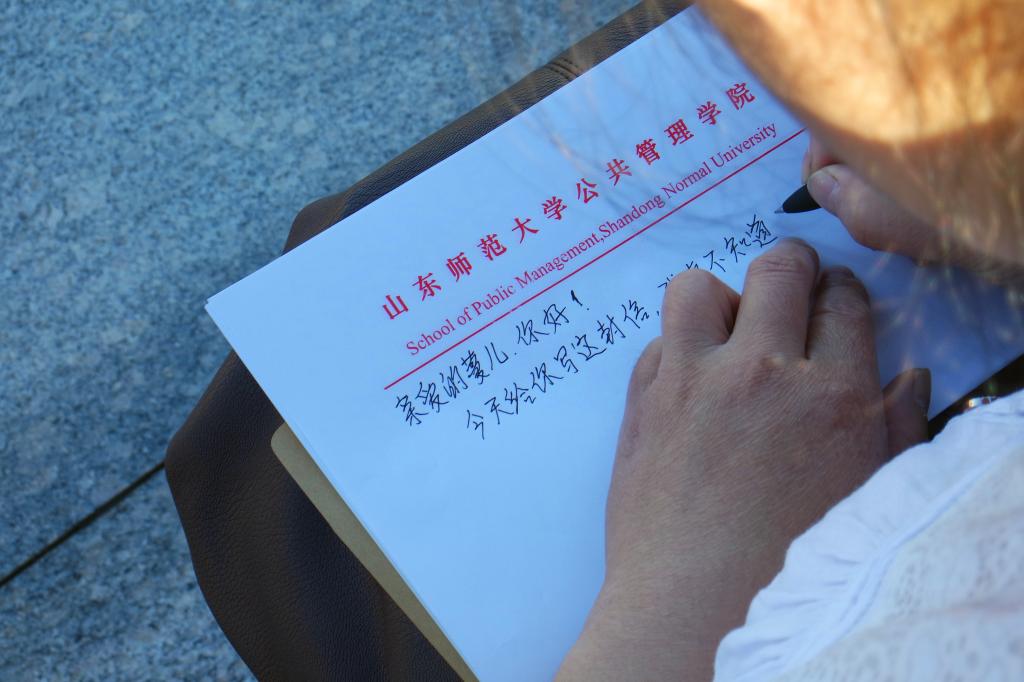 山东师范大学公共管理学院
School of Public Management,Shandong Normal University
亲爱的蔓儿.你好!
今天给你写这封信,不知道